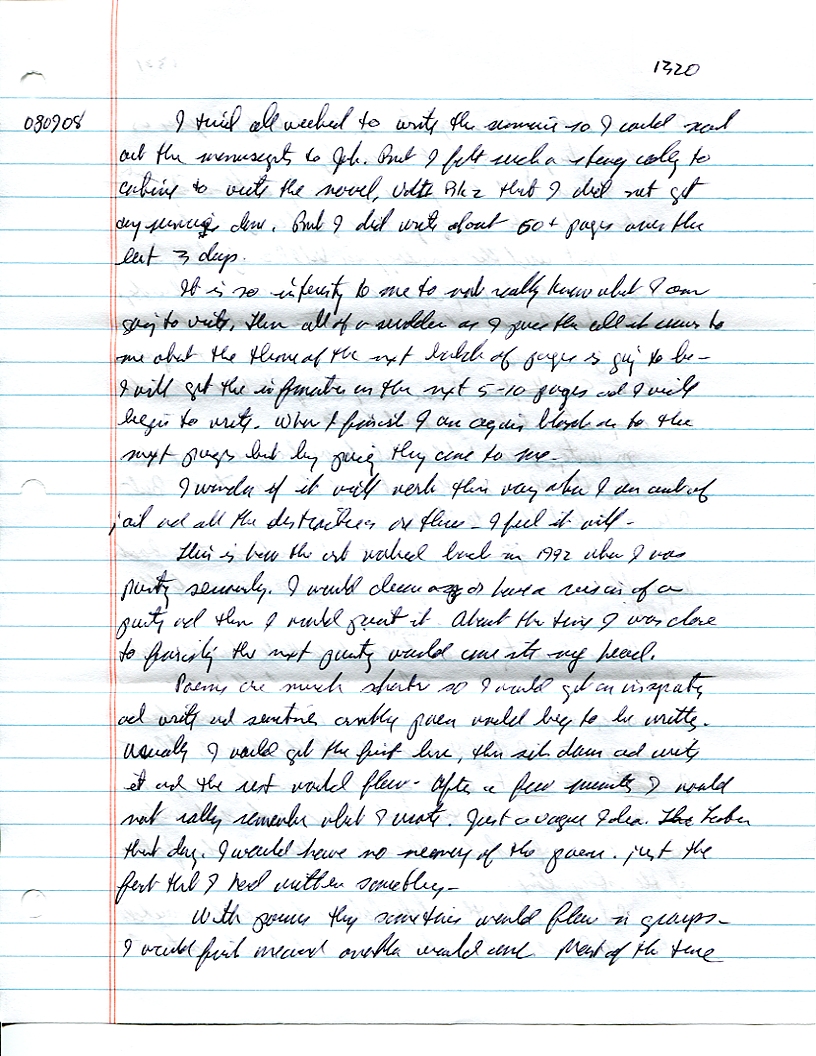 1320
080908 I tried all weekend to write the summaries so I could send
out the manuscripts to Jph. But I felt such a strong calling to
continue to write the novel, Bk 2 that I did not get
any summaries done. But I did write about 50+ pages over the
last 3 days.
It is so interesting to me to not really know what I am
going to write, then all of a sudden as I pace the cell it comes to
me what the theme of the next batch of pages is going to be -
I will get the information on the next 5-10 pages and I will
begin to write. When I finish I am again blank as to the
next pages but by pacing they come to me -
I wonder if it will work this way when I am out of
jail and all the distractions are there - I feel it will -
This is how the art worked back in 1992 when I was
painting seriously. I would dream or have a vision of a
painting and then I would paint it. About the time I was close
to finishing the next painting would come into my head.
Poems are much shorter so I would get an inspiration
and write and sometimes another poem would begin to be written.
Usually I would get the first line, then sit down and write
it and the rest would flow - After a few minutes I would
not really remember what I wrote. Just a vague idea. Later
that day, I would have no memory of the poem. just the
fact that I had written something -
With poems they sometimes would flow in groups -
I would finish one and another would come. Most of the time